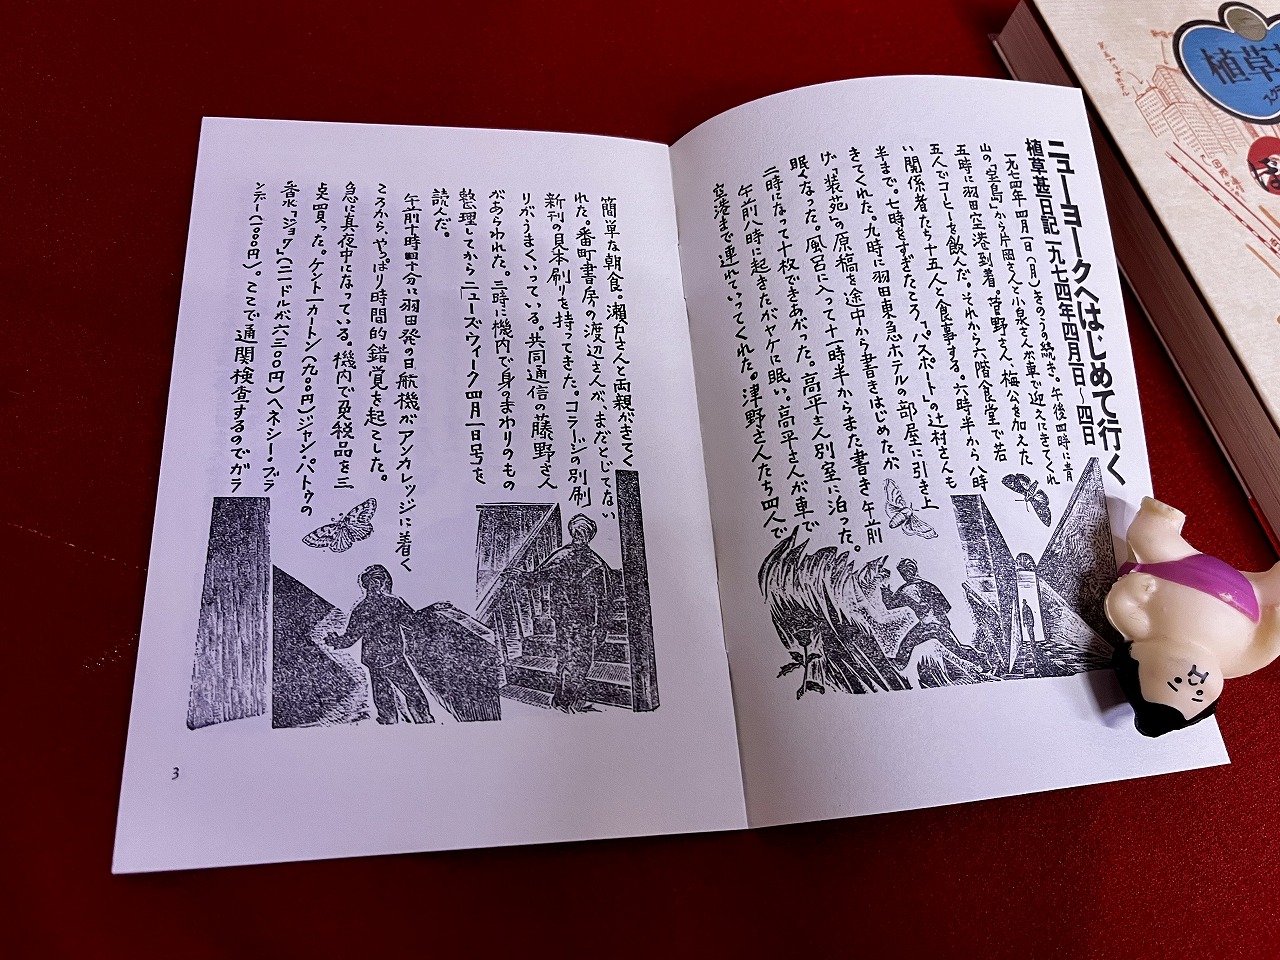 ニューヨークへはじめて行く
植草甚一日記一九七四年四月一日～四日
一九七四年四月一日(月)きのうの続き。午後四時に青
山の「宝島」から片岡さんと小泉さんが車で迎えにきてくれ
五時に羽田空港到着。菅野さん、梅公を加えた
五人でコーヒーを飲んだ。それから六階食堂で若
い関係者たち十五人と食事する。六時半から八時
半まで。七時をすぎたころ「パスポート」の辻村さんも
きてくれた。九時に羽田東急ホテルの部屋に引き上
げ「装苑」の原稿を途中から書きはじめたが、
眠くなった。風呂に入って十一時半からまた書き午前
二時になって十枚できあがった。高平さん別室に泊った。
午前八時に起きたがヤケに眠い。高平さんが車で
空港まで連れていってくれた。津野さんたち四人で
簡単な朝食。瀬がさんと両親がきてく
れた。番町書房の渡辺さんが、まだとじてない
新刊の見本刷りを持ってきた。コラージの別刷
りがうまくいっている。共同通信の藤野さん
があらわれた。三時に機内で身のまわりのもの
整理してから「ニューズウィーク四月一日号」を
読んだ。
午前十時四十分に羽田発の日航機がアンカレッジに着く
ころから、やっぱり時間的錯覚を起こした。
急に真夜中になっている。機内で免税品を三
点買った。ケント一カートン(九〇〇円)ジャン・パトゥの
香水「ジョイ」(二一ドルが六三〇〇円)ヘネシー・ブラ
ンデー(一〇〇円)。ここで通関検査するのでガラ
3
植草